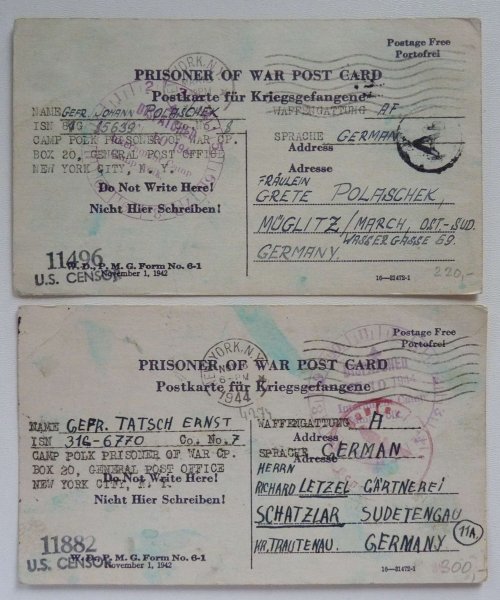 Postage Free
Portofrei
PRISONER OF WAR POST CARD
Postkarte für Kriegsgefangene
NAME GEFR. JOHANN POLASCHEK
WAFFENGATTUNG AF
ISN 8WG 15639
SPRACHE GERMAN
CAMP POLK PRISONER OF WAR CP.
Address
BOX 20, GENERAL POST OFFICE
Adresse
NEW YORK CITY, N. Y.
FRÄULEIN
Do Not Write Here!
GRETE POLASCHEK,
Nicht Hier Schreiben!
MÜGLITZ/MARCH, OST-SUD.
WASSERGASSE 59.
GERMANY.
11496
U.S. CENSOR
W. D., P. M. G. Form No. 6-1
November 1, 1942
16—31472-1
220,-
Postage Free
Portofrei
NEW YORK, N.Y.
1944
PRISONER OF WAR POST CARD
Postkarte für Kriegsgefangene
NAME GEFR. TATSCH ERNST
WAFFENGATTUNG A
ISN 31G-6770 Co. No. 7
Address
SPRACHE GERMAN
CAMP POLK PRISONER OF WAR CP.
Adresse
BOX 20, GENERAL POST OFFICE
HERRN
NEW YORK CITY, N. Y.
Do Not Write Here!
RICHARD LETZEL GÄRTNEREI
Nicht Hier Schreiben!
SCHATZLAR SUDETENGAU
KR. TRAUTENAU. GERMANY
11A
11882
U.S. CENSOR
W. D., P. M. G. Form No. 6-1
November 1, 1942
16—31472-1
300,-